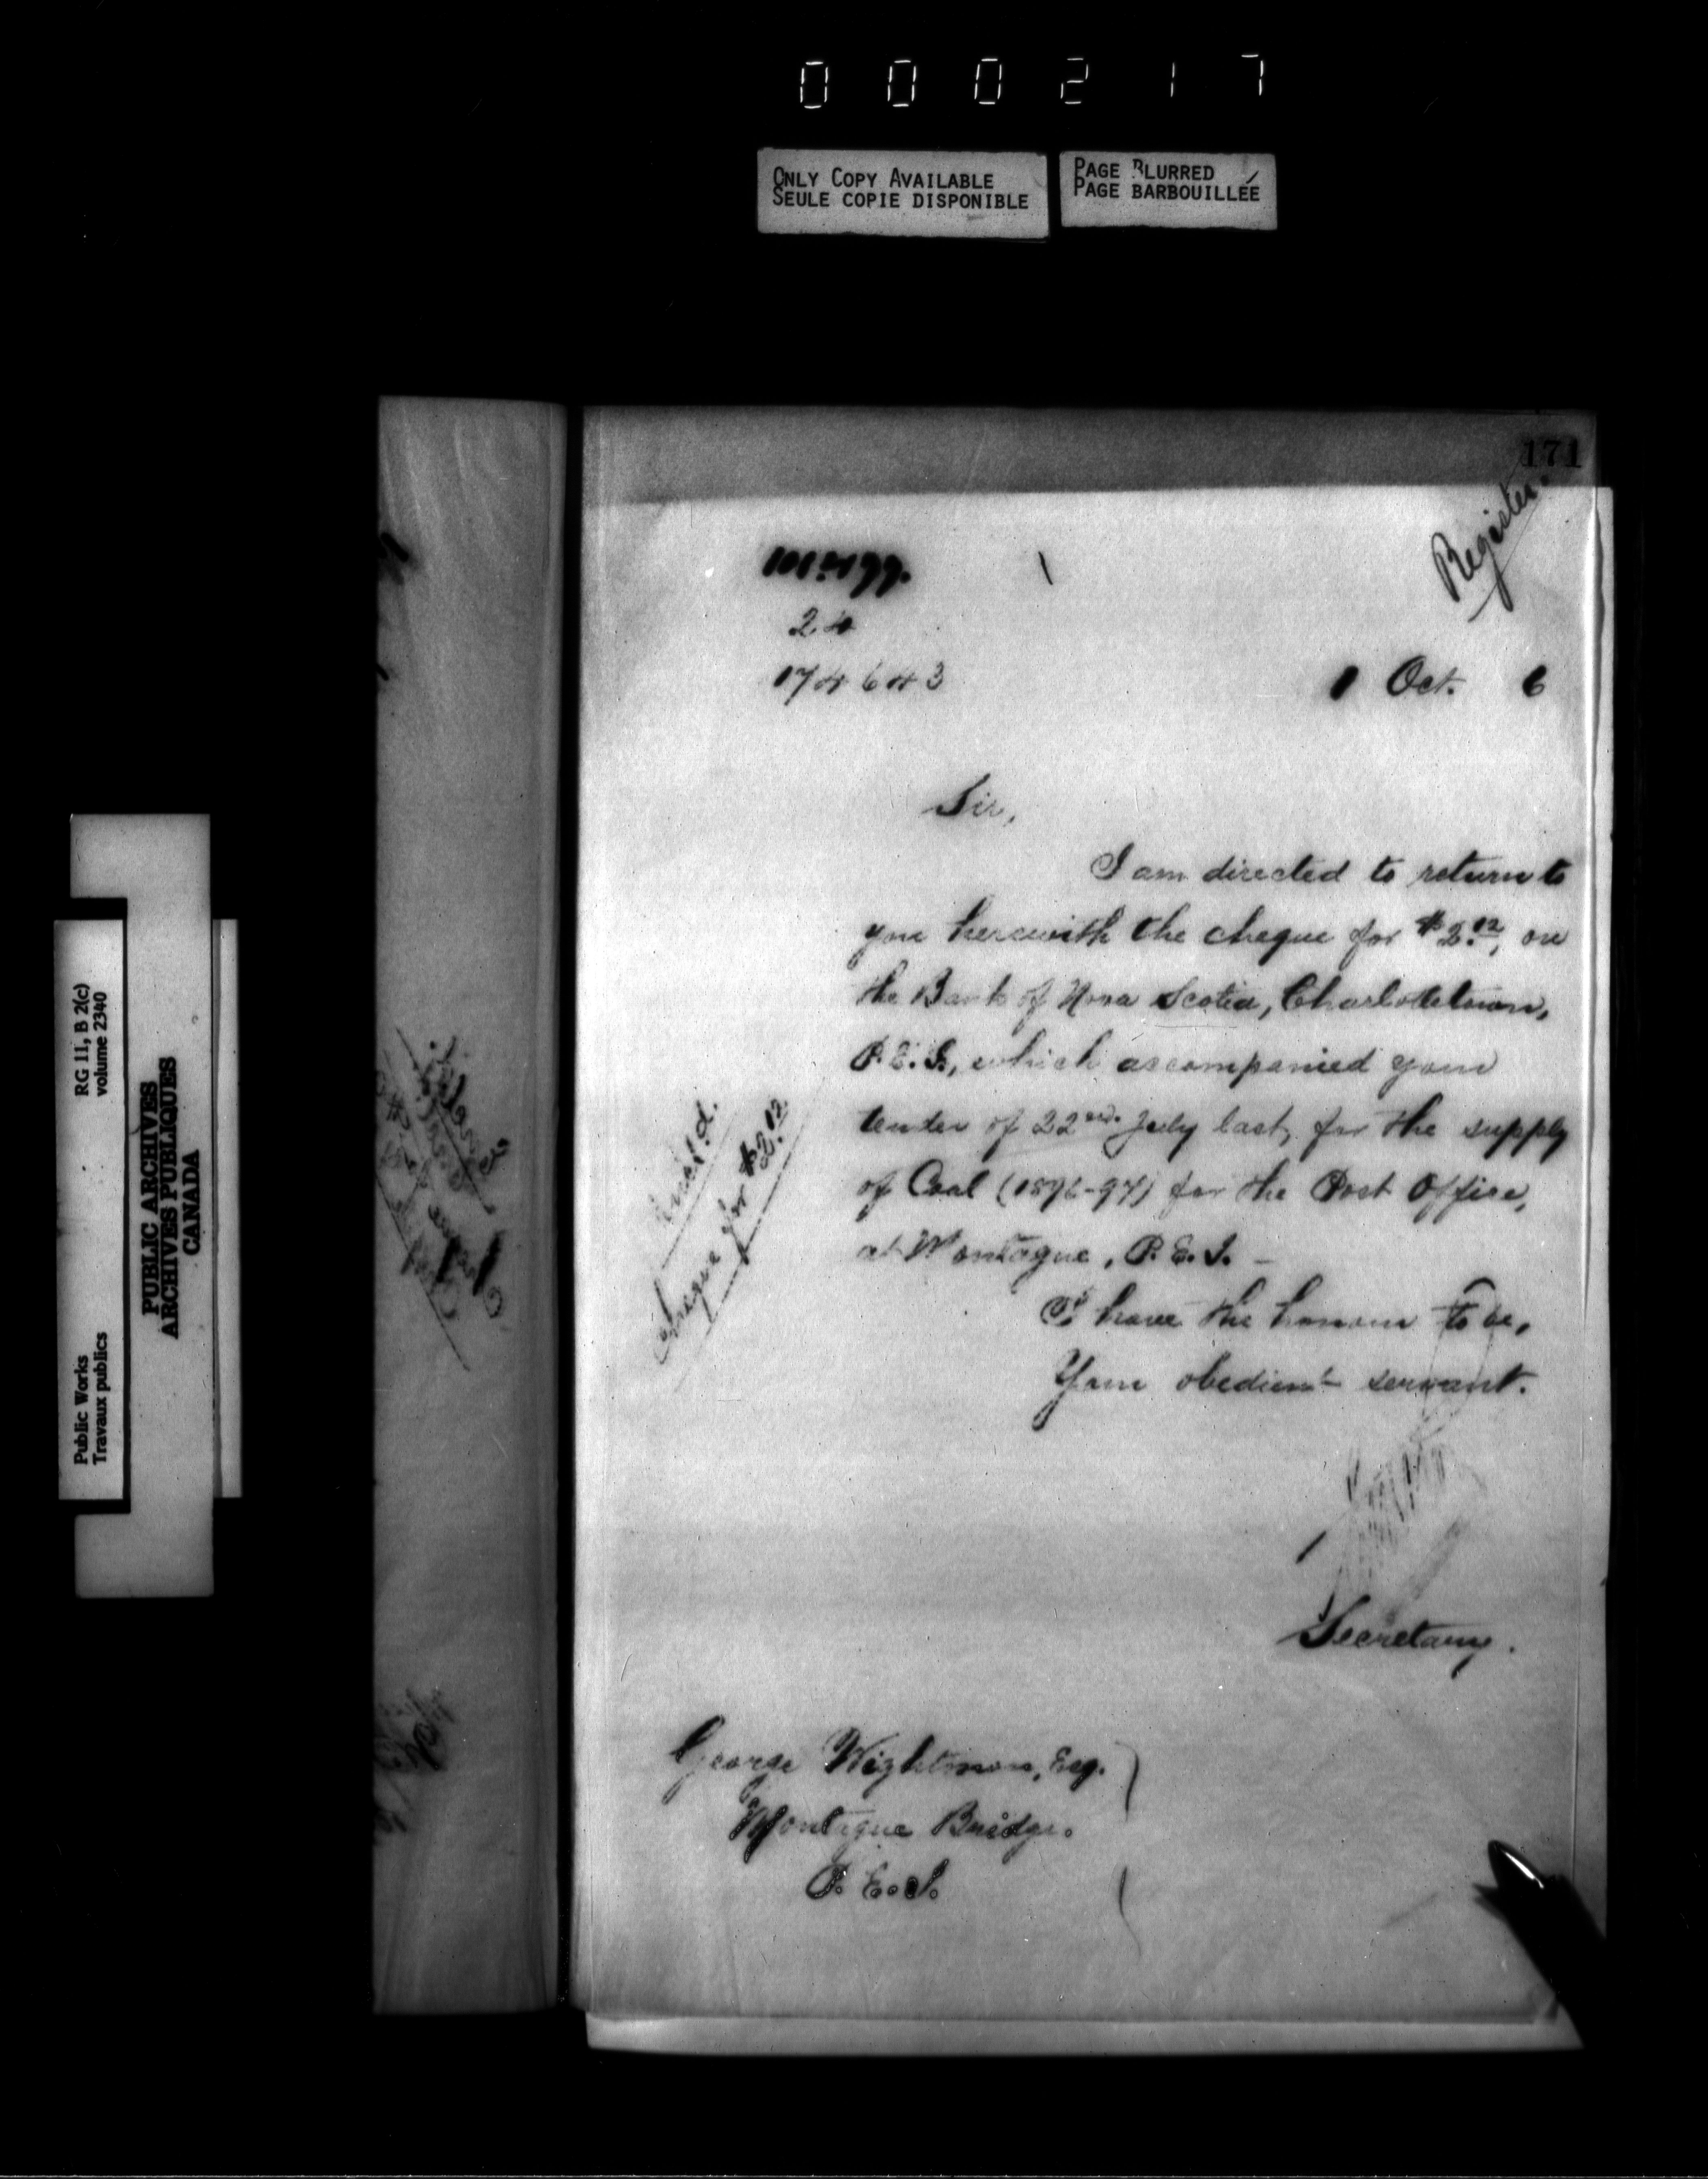 000217
ONLY COPY AVAILABLE
SEULE COPIE DISPONIBLE
PAGE BLURRED
PAGE BARBOUILLÉE
171
Register.
24
174643
1 Oct. 6
Sir,
I am directed to return to
you herewith the cheque for $2.12, on
the Bank of Nova Scotia, Charlottetown,
P.E.I., which accompanied your
tender of 22nd. July last, for the supply
of Coal (1896-97) for the Post Office,
at Montague, P.E.I.
I have the honour to be,
Your obedient servant.
Secretary.
Cheque for $2.12
George Wightman, Esq.
Montague Bridge.
P.E.I.
RG 11, B 2(c)
volume 2340
Public Works
Travaux publics
PUBLIC ARCHIVES
ARCHIVES PUBLIQUES
CANADA